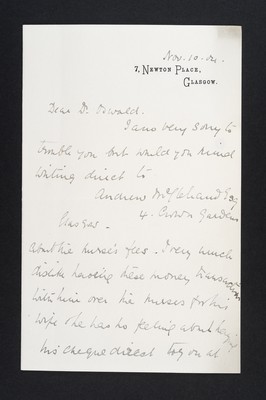 Nov. 10. 04.
7, Newton Place,
Glasgow.
Dear Dr. Oswald.
I am very sorry to
trouble you but would you mind
writing direct to
Andrew Esq
4. Crown Gardens
Glasgow.
about his nurse's fees. I very much
dislike having these money transactions
with him over the nurses for his
wife & he has no feeling about paying
his cheque direct to you at